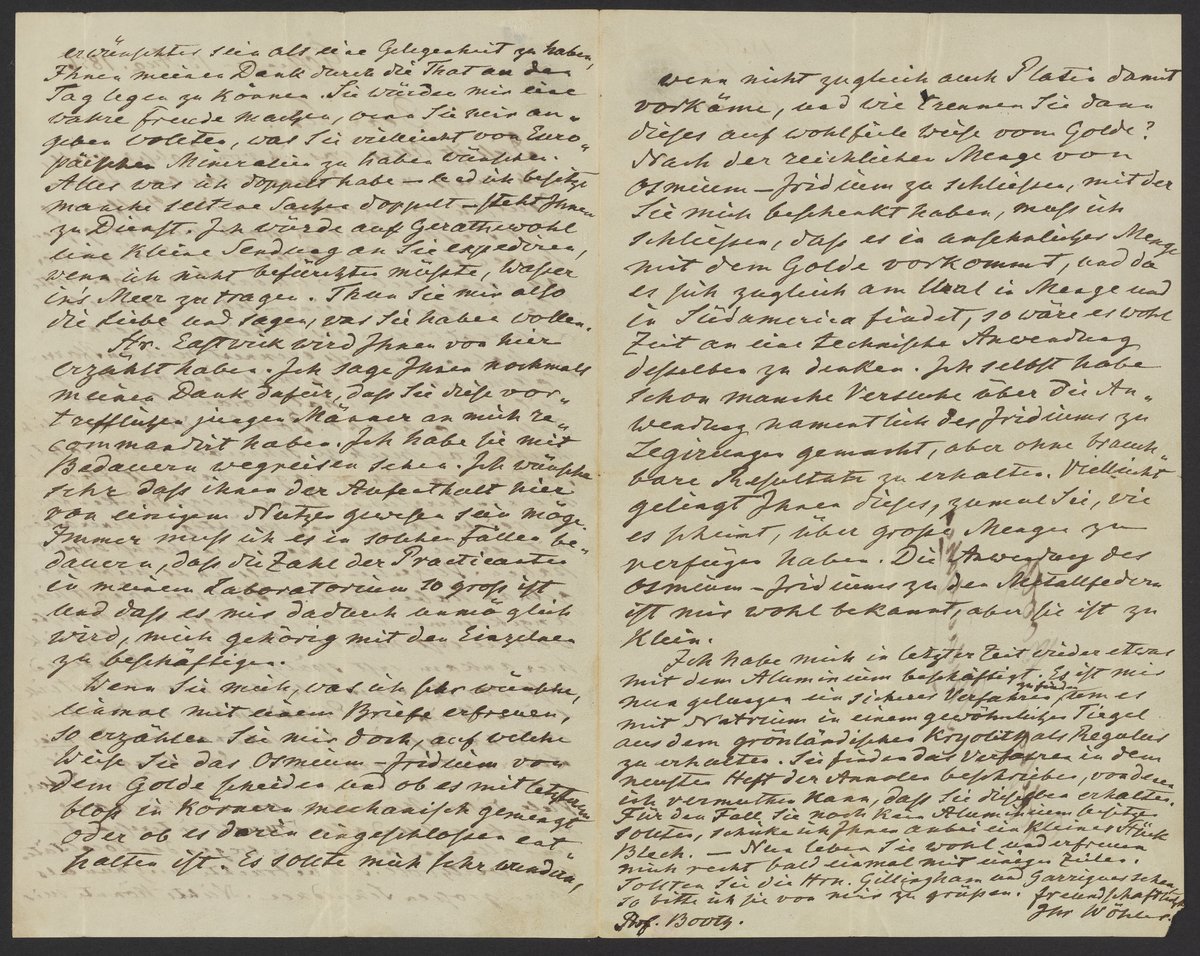 erwünschter sein als eine Gelegenheit zu haben,
Ihnen meinen Dank durch die That an den
Tag legen zu können. Sie würden mir eine
wahre Freude machen, wenn Sie mir an„
geben wollten, was Sie vielleicht von Euro„
päischen Mineralien zu haben wünschen.
Alles was ich doppelt habe – und ich besitze
manche seltene Sachen doppelt – steht Ihnen
zu Dienst. Ich würde auf Gerathewohl
eine kleine Sendung an Sie expediren,
wenn ich nicht befürchten müßte, Wasser
in's Meer zu tragen. Thun Sie mir also
die Liebe und sagen, was Sie haben wollen.
Hr. Eastwick wird Ihnen von hier
erzählt haben. Ich sage Ihnen nochmals
meinen Dank dafür, daß Sie diese vor„
trefflichen jungen Männer an mich re„
commandirt haben. Ich habe sie mit
Bedauern wegreisen sehen. Ich wünsche
sehr daß ihnen der Aufenthalt hier
von einigem Nutzen gewesen sein möge.
Immer muß ich es in solchen Fällen be„
dauern, daß die Zahl der Practicanten
in meinem Laboratorium so groß ist
und daß es mir dadurch unmöglich
wird, mich gehörig mit den Einzelnen
zu beschäftigen.
Wenn Sie mich, was ich sehr wünsche,
einmal mit einem Briefe erfreuen,
so erzählen Sie mir doch, auf welche
Weise Sie das Osmium-Iridium von
dem Golde scheiden und ob es mit letzterem
blos in Körnern mechanisch gemengt
oder ob es darin eingeschlossen ent
halten ist. Es sollte mich sehr wundern,
wenn nicht zugleich auch Platin damit
vorkäme, und wie trennen Sie dann
dieses auf wohlfeile Weise vom Golde?
Nach der reichlichen Menge von
Osmium-Iridium zu schließen, mit der
Sie mich beschenkt haben, muß ich
schließen, daß es in ansehnlicher Menge
mit dem Golde vorkommt, und da
es sich zugleich am Ural in Menge und
in Südamerica findet, so wäre es wohl
Zeit an eine technische Anwendung
desselben zu denken. Ich selbst habe
schon manche Versuche über die An„
wendung namentlich des Iridiums zu
Legirungen gemacht, aber ohne brauch„
bare Resultate zu erhalten. Vielleicht
gelingt Ihnen dieses, zumal Sie, wie
es scheint, über große Mengen zu
verfügen haben. Die Anwendung des
Osmium-Iridiums zu den Metallfedern
ist mir wohl bekannt, aber sie ist zu
klein.
Ich habe mich in letzter Zeit wieder etwas
mit dem Aluminium beschäftigt. Es ist mir
nun gelungen ein sicheres Verfahren zu finden, um es
mit Natrium in einem gewöhnlichen Tiegel
aus dem grönländischen Kryolith als Regulus
zu erhalten. Sie finden das Verfahren in dem
neusten Heft der Annalen beschrieben, von denen
ich vermuthen kann, daß Sie dieselben erhalten.
Für den Fall, Sie noch kein Aluminium besitzen
sollten, schicke ich Ihnen anbei ein kleines Stück
Blech. – Nun leben Sie wohl und erfreuen
mich recht bald einmal mit einigen Zeilen.
Sollten Sie die Hrn. Gillingham und Garrigues sehen,
so bitte ich sie von mir zu grüßen. freundschaftlichst
Prof. Booth. Ihr Wöhler.